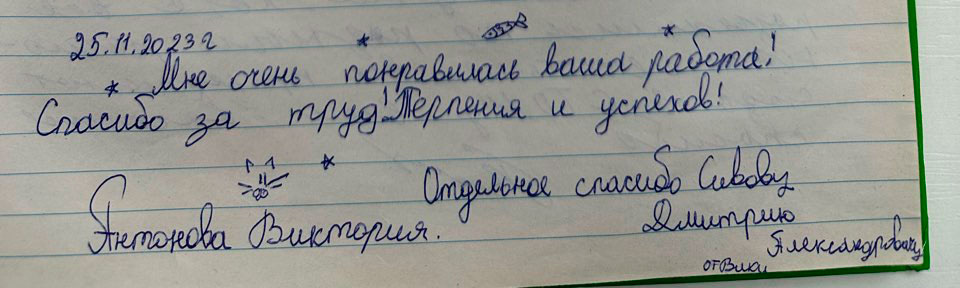 25.11.2023г
Мне очень понравилась ваша работа!
Спасибо за труд! Терпения и успехов!
Отдельное спасибо Сивову
Антонова Виктория. Дмитрию
Александровичу
от Вики